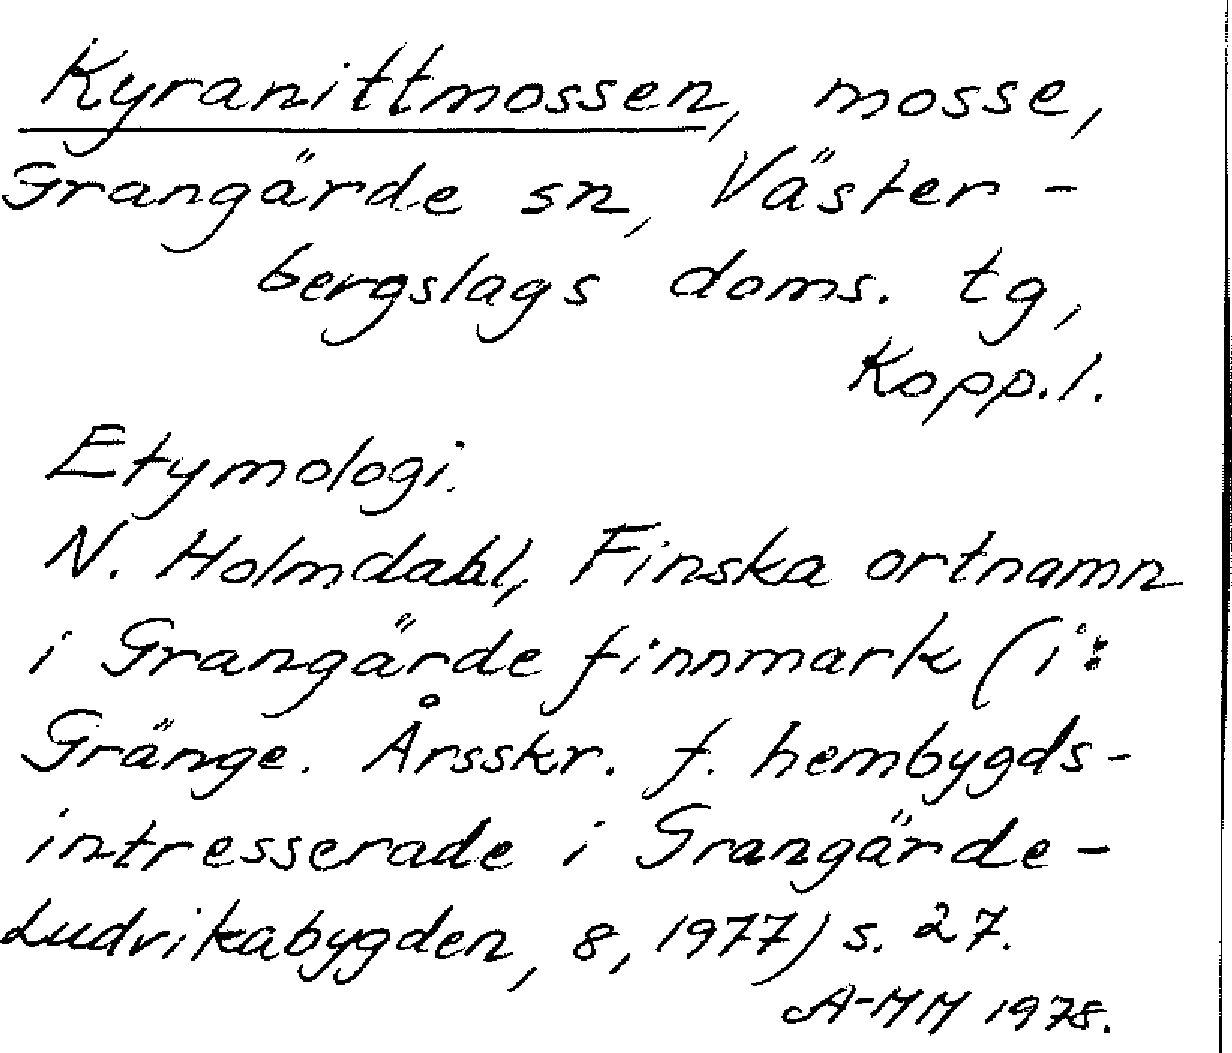 Kyranittmossen, mosse,
Grangärde sn, Väster-
bergslags doms. tg,
Kopp.l.
Etymologi.
N. Holmdahl, Finska ortnamn
i Grangärde finnmark (i:
Gränge. Årsskr. f. hembygds-
intresserade i Grangärde-
Ludvikabygden, 8, 1977) s. 27.
A-MM 1978.